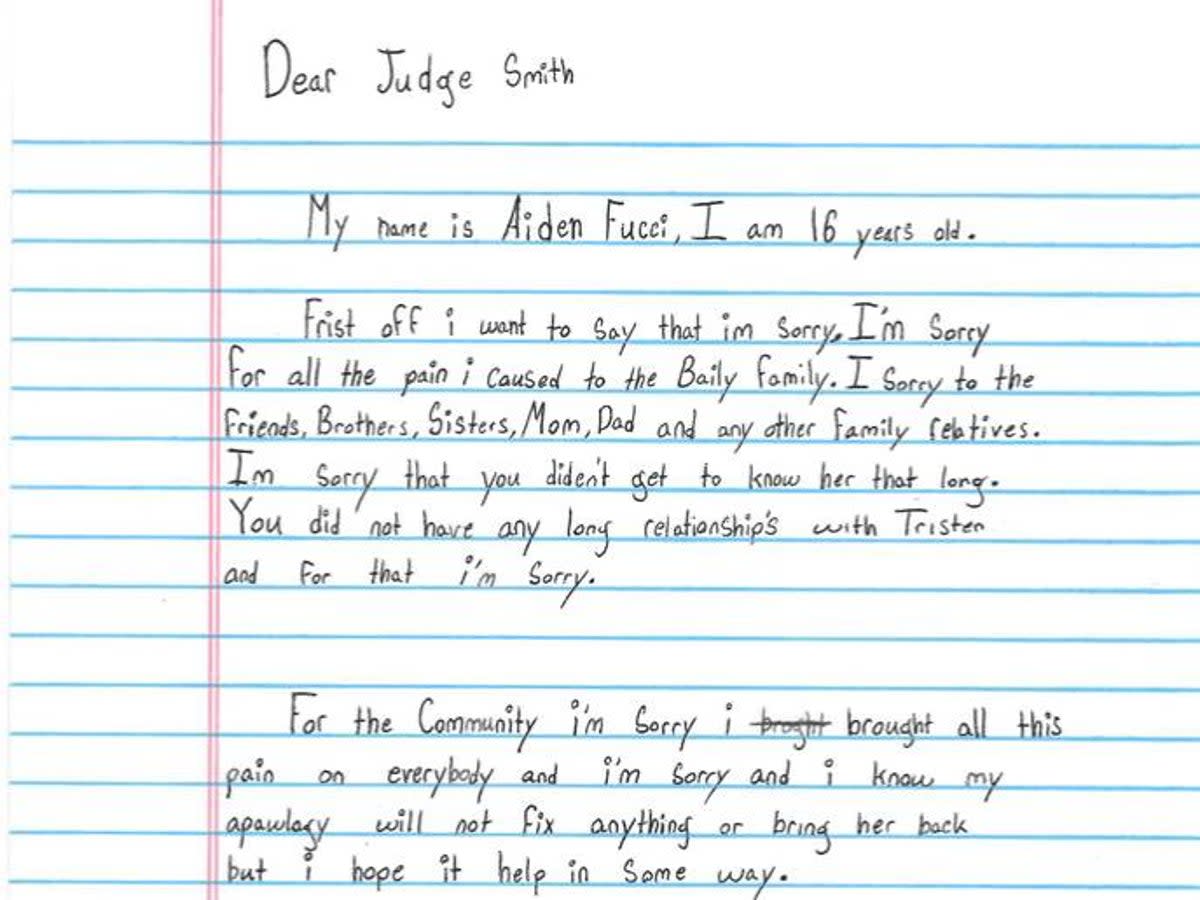 Dear Judge Smith
My name is Aiden Fucci, I am 16 years old.
Frist off i want to say that im sorry, I'm sorry
for all the pain i caused to the Baily family. I sorry to the
friends, Brothers, Sisters, Mom, Dad and any other family relatives.
Im sorry that you diden't get to know her that long.
You did not have any long relationship's with Tristen
and for that i'm sorry.
For the Community i'm sorry i broght brought all this
pain on everybody and i'm sorry and i know my
apawlagy will not fix anything or bring her back
but i hope it help in some way.